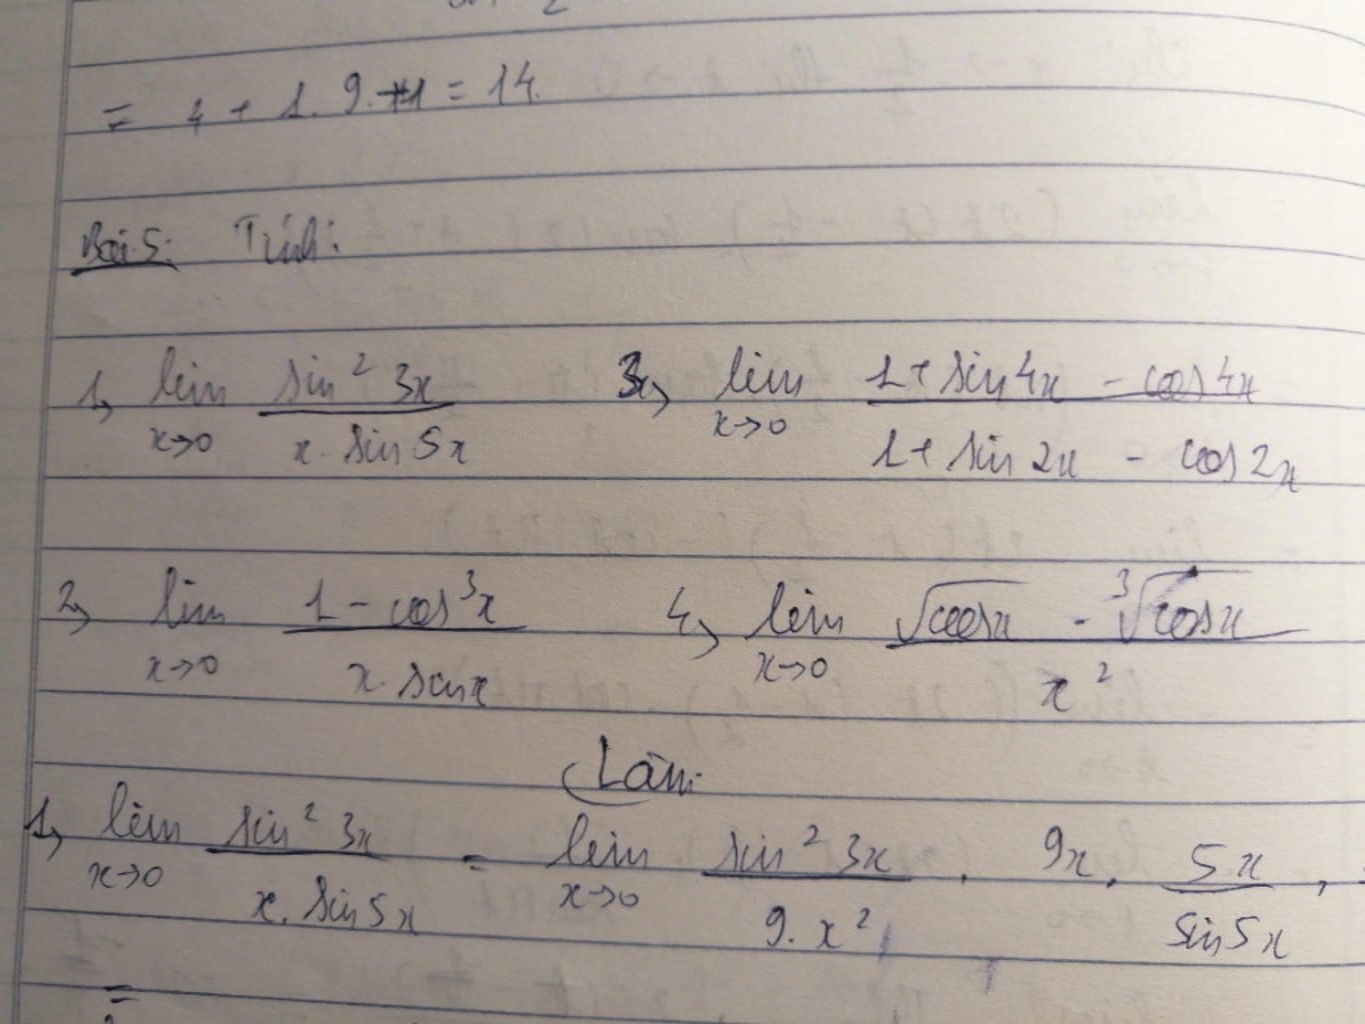 = 4 + 1. 9. +1 = 14.
Bài 5: Tính:
1, lim x→0 sin² 3x / x. sin 5x 3, lim x→0 1 + sin 4x - cos 4x / 1 + sin 2x - cos 2x
2, lim x→0 1 - cos³x / x. sin x 4, lim x→0 √cosx - ³√cosx / x²
Làm:
1, lim x→0 sin² 3x / x. sin 5x = lim x→0 sin² 3x / 9. x² . 9x. 5x / sin 5x .
=